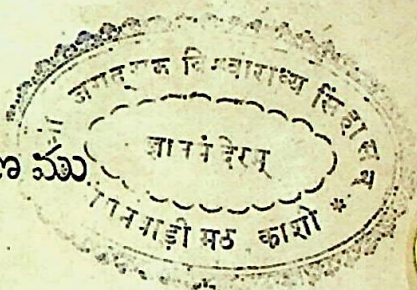 जगद्गुरु विश्वाराध्य सिंहासन
ज्ञानमंदिरम्
मठ काशी *
ము